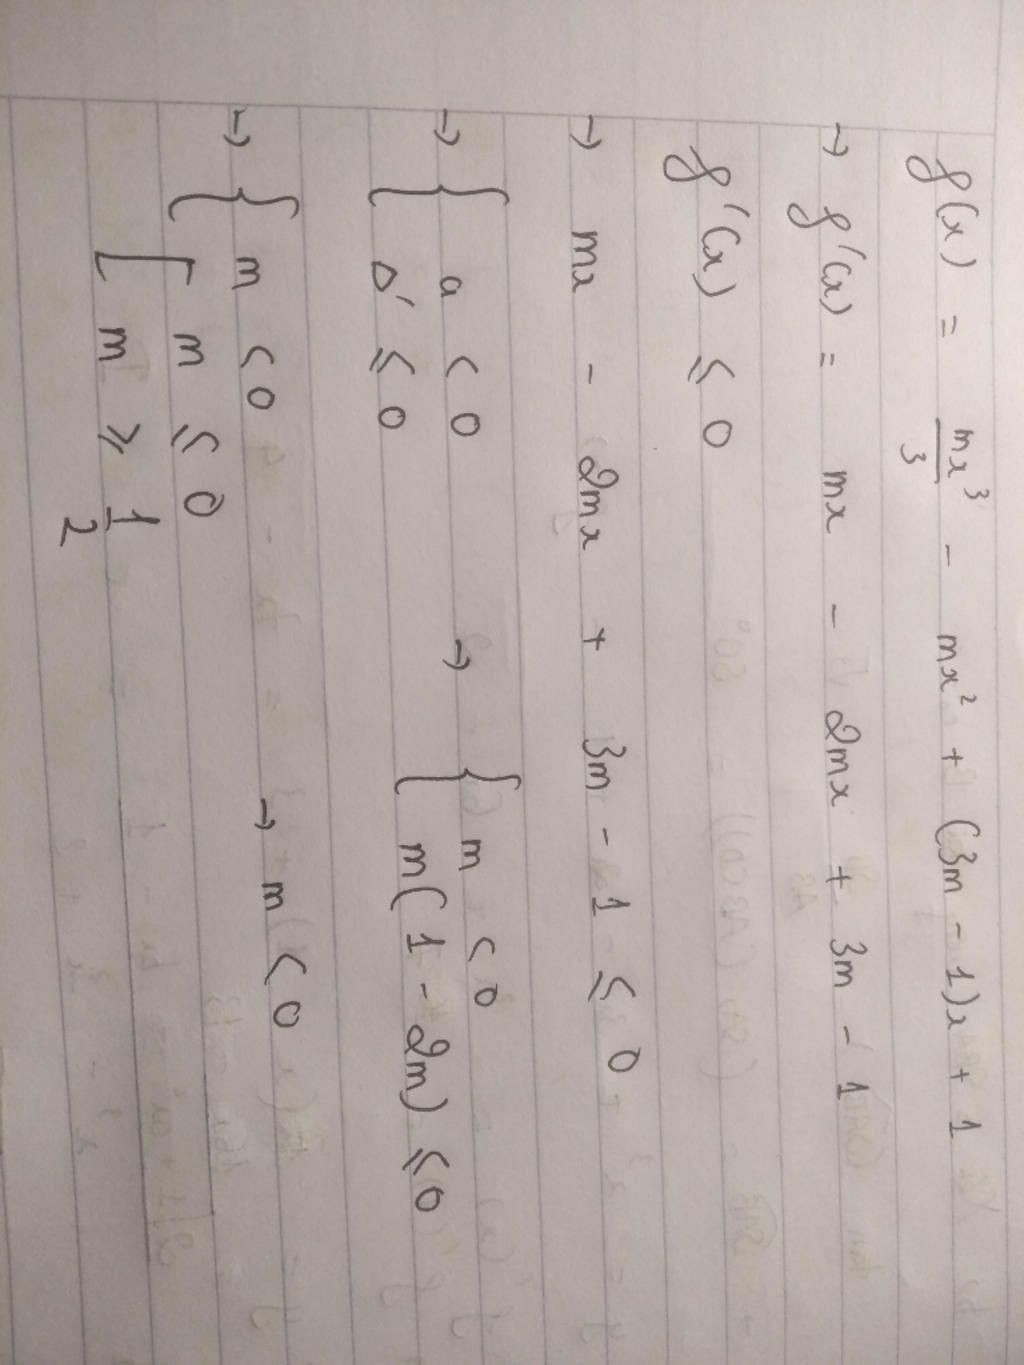 f(x) = mx³/3 - mx² + (3m - 1)x + 1
→ f'(x) = mx - 2mx + 3m - 1
f'(x) ≤ 0
→ mx - 2mx + 3m - 1 ≤ 0
→ { a < 0 → { m < 0
Δ' ≤ 0 m(1 - 2m) ≤ 0
→ { m < 0 → m < 0
[ m ≤ 0
m ≥ 1/2